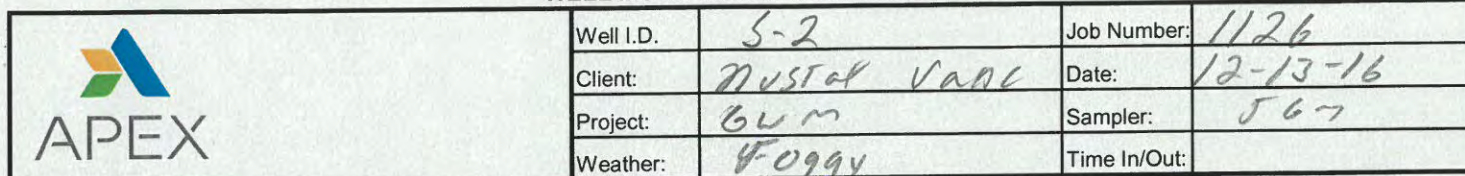 APEX
Well I.D. S-2 Job Number: 1126
Client: NUSTAR VANC Date: 12-13-16
Project: GWM Sampler: JGM
Weather: Foggy Time In/Out: